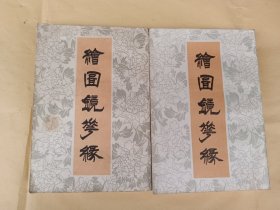 繪圖鏡花緣
繪圖鏡花緣